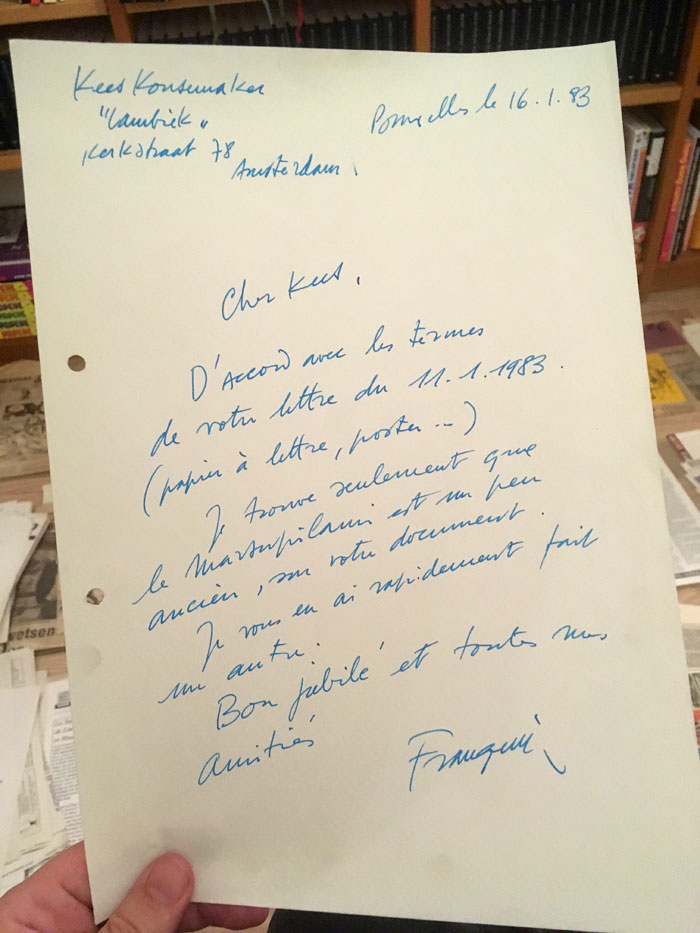 Kees Kousemaker
"Lambiek"
Kerkstraat 78
Amsterdam.
Bruxelles le 16.1.83
Cher Kees,
D'Accord avec les termes
de votre lettre du 11.1.1983.
(papier à lettre, poster...)
Je trouve seulement que
le Marsupilami est un peu
ancien, sur votre document.
Je vous en ai rapidement fait
un autre.
Bon jubilé et toutes mes
amitiés
Franquin
wetsen